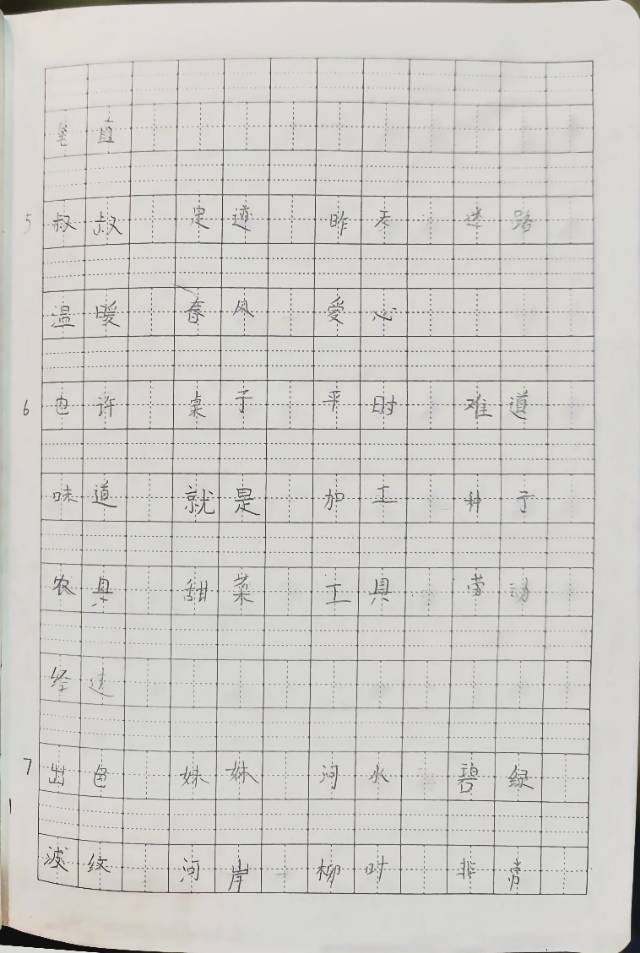 笔直
5 叔叔 足迹 昨天 迷路
温暖 春风 爱心
6 也许 桌子 平时 难道
味道 就是 加工 种子
农具 甜菜 工具 劳动
经过
7 出色 妹妹 河水 碧绿
波纹 河岸 柳叶 非常